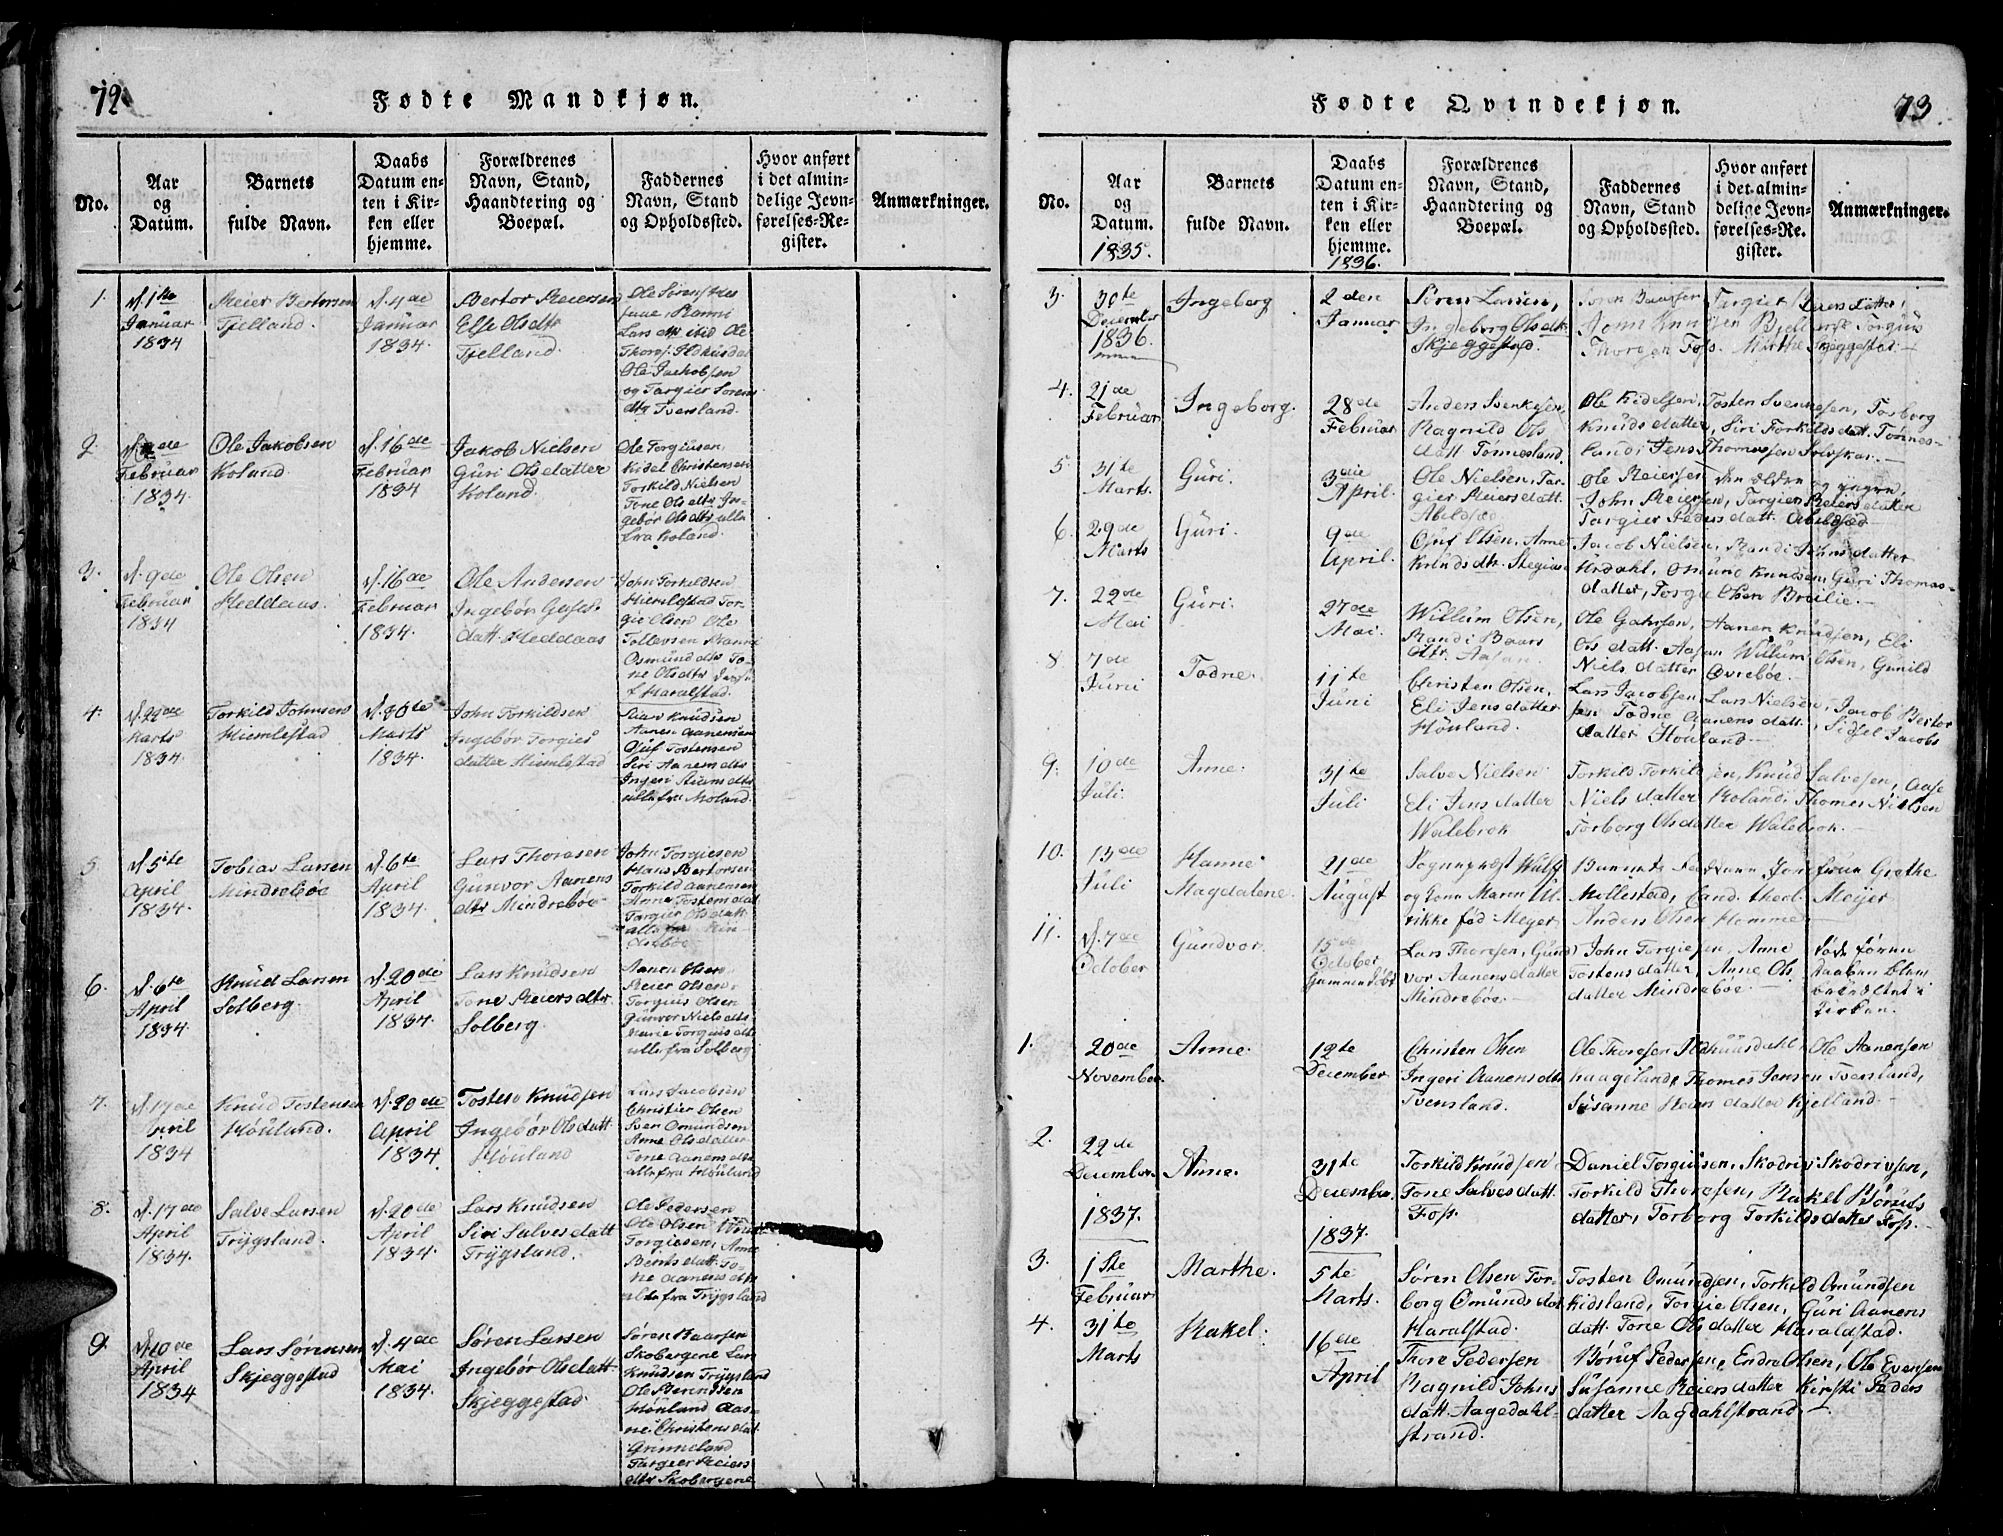 72
Fødte Mandkjøn.
No.
Aar
og
Datum.
Barnets
fulde Navn.
Daabs
Datum en-
ten i Kir-
ken eller
hjemme.
Forældrenes
Navn, Stand,
Haandtering og
Boepæl.
Faddernes
Navn, Stand
og Opholdssted.
Hvor anført
i det almin-
delige Jevn-
førelses-Re-
gister.
Anmærkninger.
1.
d. 1ste
Januar
1834
Reier Bertorsen
Tjelland.
d. 4de
Januar
1834.
Bertor Reiersen
Else Olsdtr
Tjelland.
Lars dtr ibid Ole
Ole Jackobsen
og Targier Sørens
dtr Tversland.
2.
Februar
1834.
Ole Jakobsen
Koland.
d. 16de
Februar
1834
Jakob Nielsen
Guri Olsdatter
Koland.
Ole Torgiusen,
Kidel Christensen
Torkild Nielsen
Tone Olsdtr In-
gebør Olsdtr alle
fra Koland.
3.
d. 9de
Februar
1834
Ole Olsen
Heddaas.
d. 16de
Februar
1834.
Ole Andersen
Ingebør
datt. Heddaas
John Torkildsen
Hiemlestad Tor-
gie Olsen Ole
Tollevsen
Osmund dtr To-
ne Olsdtr
f. Haralstad.
4.
Marts
1834.
Torkild Johnsen
Hiemlestad
Marts
1834.
John Torkildsen
Ingebør Torgies
datter Hiemlestad
Knudsen
Aanen Aanensen
Oluf Tostensen
Siri Aanensdtr
alle fra Moland.
5.
d. 5te
April
1834.
Tobias Larsen
Mindrebøe
d. 6te
April
1834.
Lars Thorasen
Gunvor Aanens
dtr Mindrebøe
John Torgiesen
Hans Bertorsen
Torkild Aanensen
Anne Tostensdat
Targier Olsdatt
alle fra Min-
drebøe
6.
d. 6te
April
1834
Knud Larsen
Solberg.
d. 20de
April
1834.
Lars Knudsen
Tone Reiersdtr
Solberg
Aanen Olsen
Reier Olsen,
Torguis Olsen
Gunvor Nielsdtr
Marie Torguisdtr
alle fra Solberg
7.
d. 17de
April
1834
Knud Tostensen
Høuland.
d. 20de
April
1834.
Tosten Knudsen
Ingebør Olsdatt
Høuland
Lars Jacobsen
Christier Olsen
Sven Omundsen
Anne Olsdatter
Tone Aanensdtr
alle fra Høuland
8.
d. 17de
April
1834.
Salve Larsen
Trygsland.
d. 20de
April
1834.
Lars Knudsen
Siri Salvesdatt
Trygsland.
Ole Pedersen
Ole Olsen
Torgiesen, Anne
Berntsdatt. To-
ne Aanensdtr
alle fra Trygsland
9.
d. 10de
April
1834
Lars Sørensen
Skjeggestad
d. 4de
Mai
1834.
Søren Larsen
Ingebør Olsdatt
Skjeggestad
Søren Baarsen
Skobergene Lars
Knudsen Trygsland
Ole Berentsen
Høuland Aas-
ne Christensdat
Grinneland
Targier Reiers
dtr Skobergene
Fødte Qvindekjøn.
73.
No.
Aar
og
Datum.
1835.
Barnets
fulde Navn.
Daabs
Datum en-
ten i Kir-
ken eller
hjemme.
1836.
Forældrenes
Navn, Stand,
Haandtering og
Boepæl.
Faddernes
Navn, Stand
og Opholdssted.
Hvor anført
i det almin-
delige Jevn-
førelses-Re-
gister.
Anmærkninger.
3.
30te
December
1836.
Ingeborg
2den
Januar
Søren Larsen,
Ingeborg Olsdtr.
Skjeggestad.
Søren Baarsen Targier Larsdatter,
John Knudsen
Thorsen Foss. Marthe Skjeggestad.
4.
21de
Februar
Ingeborg.
28de
Februar
Anders Svenkesen,
Ragnild Ols
datt Tønnesland.
Ole Kidelsen, Tosten Svenkesen, Torborg
Knudsdatter, Siri Torkildsdatt. Tønnes-
land, Jens Thomassen Solvskar.
5.
31te
Marts.
Guri.
3die
April.
Ole Nielsen, Tar-
gier Reiersdatt.
Abildsæd
Ole Reiersen den ældre og yngre,
John Reiersen, Targier Reiersdatter
Targier Pedersdatt. Abildsæd
6.
29de
Marts
Guri.
9de
April.
Oluf Olsen, Anne
Knudsdtr. Stegias
Jacob Nielsen, Randi Johnsdatter
Urdahl, Osmund Knudsen, Guri Thomas-
datter, Torgu Olsen Brulie.
7.
22de
Mai
Guri.
27de
Mai.
Willum Olsen,
Randi Baars
dtr. Aasan
Ole Gahrsen, Aanen Knudsen, Eli
Ols datt. Aasan Willum Olsen, Gunild
Niels datter Øvrebøe.
8
7de
Juni
Todne.
11te
Juni
Christen Olsen,
Eli Jensdatter
Høuland.
Lars Jacobsen Lars Nielsen, Jacob Bertor
sen Todne Aanensdatt., Sidsel Jacobs
datter Høuland
9.
10de
Juli.
Anne.
31te
Juli
Salve Nielsen
Eli Jensdatter
Walebrok
Torkild Torkildsen, Knud Salvesen, Aase
Nielsdatter Roland, Thomes Nielsen
Torborg Olsdatter Walebrok.
10.
13de
Juli
Hanne
Magdalene.
21de
August
Sogneprest Wulf
og Kone Maren Ul-
rikke fød Meyer
Barnets Faddere, Jomfruen Grethe
Mollestad, Cand. theol. Meijer
Anders Olsen Homme
11.
d. 7de
October
Gundvor.
15de
October
Lars Thoresen, Gund
vor Aanensdatter
Mindrebøe.
John Torgiesen, Anne
Tostensdatter, Anne Ols
datter Mindrebøe.
døde førend
daaben blev
bekræftet i
Kirken.
1.
20de
November
Anne.
12te
December
Christen Olsen
Ingeri Aanensdtr
Tversland.
Ole Thoresen Ildhuusdahl, Ole Aanensen
Haageland, Thomes Jensen Tversland,
Susanne Reiersdatter Kjelland.
2.
22de
December
1837.
Anne.
31te
December.
1837.
Torkild Knudsen
Tone Salvesdatt.
Foss.
Daniel Torgiusen, Skodriv Skodrivsen,
Torkild Thorosen, Rakel Børufs
datter, Torborg Torkildsdatter Foss.
3.
1ste
Februar
Marthe.
5te
Marts.
Søren Olsen Tor-
borg Omundsdat
Haralstad.
Tosten Omundsen, Torkild Omundsen
Kidsland, Torgie Olsen, Guri Aanens
datt. Tone Olsdatter Haraldstad.
4.
31te
Marts
Rakel.
16de
April
Thore Pedersen
Ragnild Johns
datt. Aagedahl-
strand.
Børuf Pedersen, Endre Olsen, Ole Evensen
Susanne Reiersdatter Kirsti Peders
datter Aagdahlstrand.